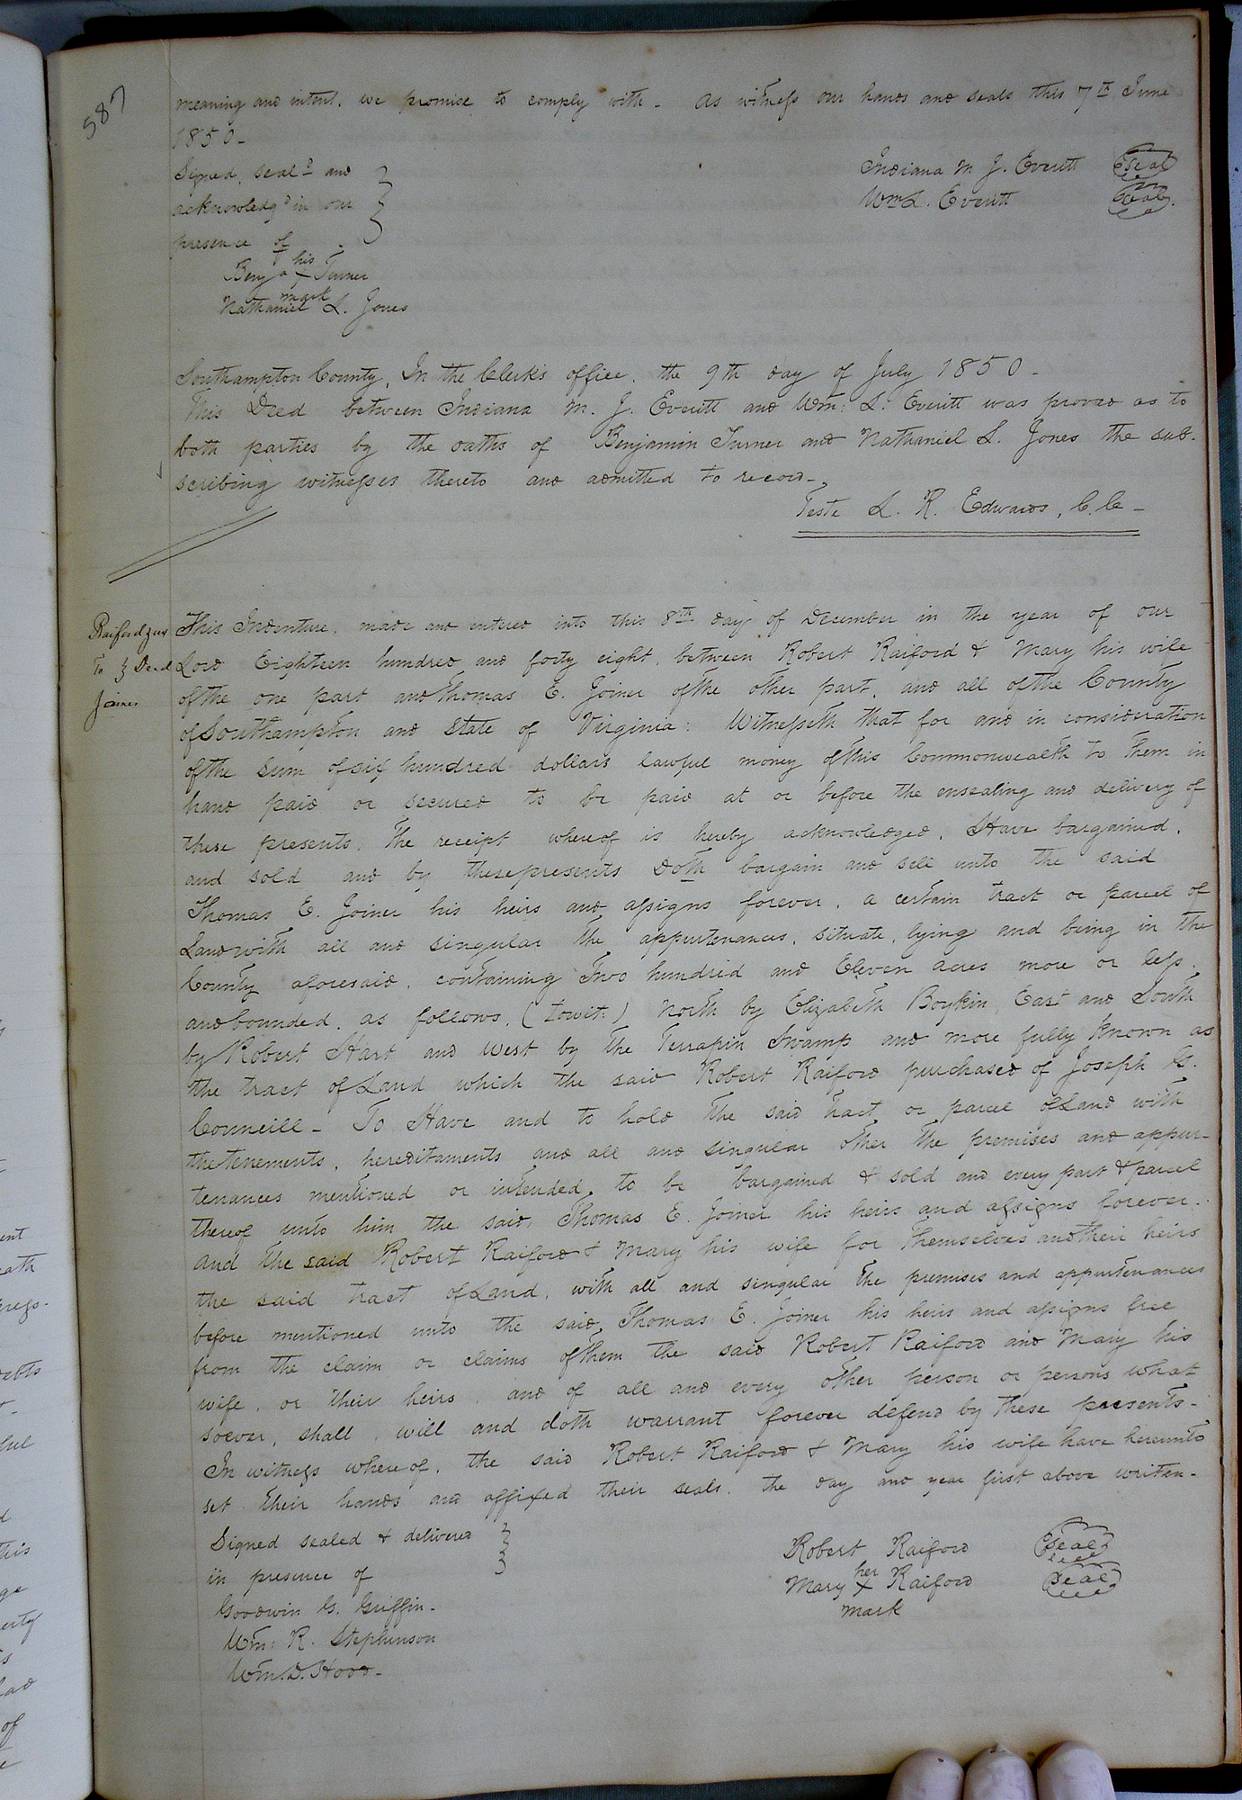 587
meaning and intent, we promise to comply with - As witness our hands and seals this 7th June
1850-
Signed, seal'd and
acknowledg'd in our
presence of
Indiana M. J. Everitt Seal
Wm L. Everitt Seal
his
Benj a X Turner
mark
Nathaniel L. Jones
Southampton County, In the Clerk's office, the 9th day of July 1850-
This Deed between Indiana M. J. Everitt and Wm: L. Everitt was proved as to
both parties by the oaths of Benjamin Turner and Nathaniel L. Jones the sub-
scribing witnesses thereto and admitted to record-
Teste L. R. Edwards, C. C-
Raiford & ux
To } Deed
Joiner
This Indenture, made and entered into this 8th day of December in the year of our
Lord Eighteen hundred and forty eight, between Robert Raiford & Mary his wife
of the one part and Thomas E. Joiner of the other part, and all of the County
of Southampton and State of Virginia: Witnesseth that for and in consideration
of the Sum of six hundred dollars lawful money of this Commonwealth to them in
hand paid or secured to be paid at or before the ensealing and delivery of
these presents, The receipt whereof is hereby acknowledged, Have bargained,
and sold and by these presents doth bargain and sell unto the said
Thomas E. Joiner his heirs and assigns forever, a certain tract or parcel of
Land with all and singular the appurtenances, situate, lying and being in the
County aforesaid, containing Two hundred and Eleven acres more or less,
and bounded, as follows, (towit:) North by Elizabeth Boykin East and South
by Robert Hart and West by the Terrapin Swamp and more fully known as
the tract of Land which the said Robert Raiford purchased of Joseph G.
Councill - To Have and to hold the said tract or parcel of Land with
the tenements, hereditaments and all and singular other the premises and appur-
tenances mentioned or intended to be bargained & sold and every part & parcel
thereof unto him the said, Thomas E. Joiner his heirs and assigns forever.
And the said Robert Raiford & Mary his wife for themselves and their heirs
the said tract of Land, with all and singular the premises and appurtenances
before mentioned unto the said, Thomas E. Joiner his heirs and assigns free
from the claim or claims of them the said Robert Raiford and Mary his
wife, or their heirs, and of all and every other person or persons what
soever, shall, will and doth warrant forever defend by these presents-
In witness whereof, the said Robert Raiford & Mary his wife have hereunto
set their hands and affixed their seals, the day and year first above written-
Signed sealed & delivered
in presence of
Goodwin G. Griffin-
Wm: R. Stephinson
Wm. D. Hood-
Robert Raiford Seal
her
Mary X Raiford Seal
mark